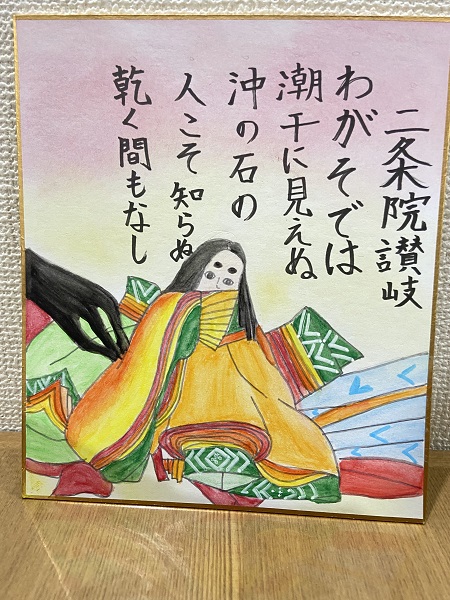 二条院讃岐
わがそでは
潮干に見えぬ
沖の石の
人こそ知らぬ
乾く間もなし